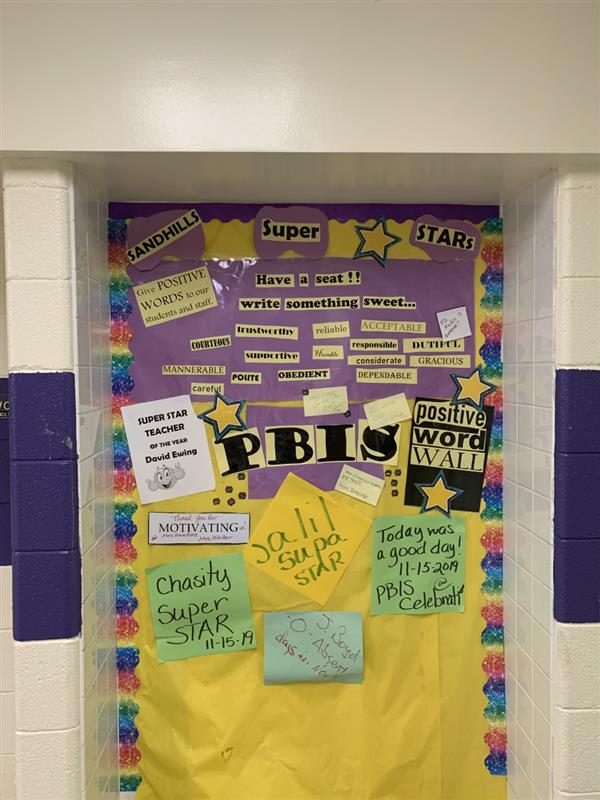 SANDHILLS Super STARs
Give POSITIVE
WORDS to our
students and staff.
Have a seat !!
write something sweet...
trustworthy reliable ACCEPTABLE
COURTEOUS responsible DUTIFUL
supportive Humble considerate GRACIOUS
MANNERABLE POLITE OBEDIENT DEPENDABLE
careful
SUPER STAR
TEACHER
OF THE YEAR
David Ewing
PBIS
positive
word
WALL
Thank you for
MOTIVATING
Mrs. Walker
Jalil
Supa
STAR
Today was
a good day!
11-15-2019
PBIS @
Celebrati
Chasity
Super
STAR
11-15-19
J. Boyd
O. Absent
days in Nov